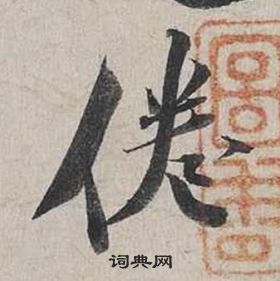 倦
词典网